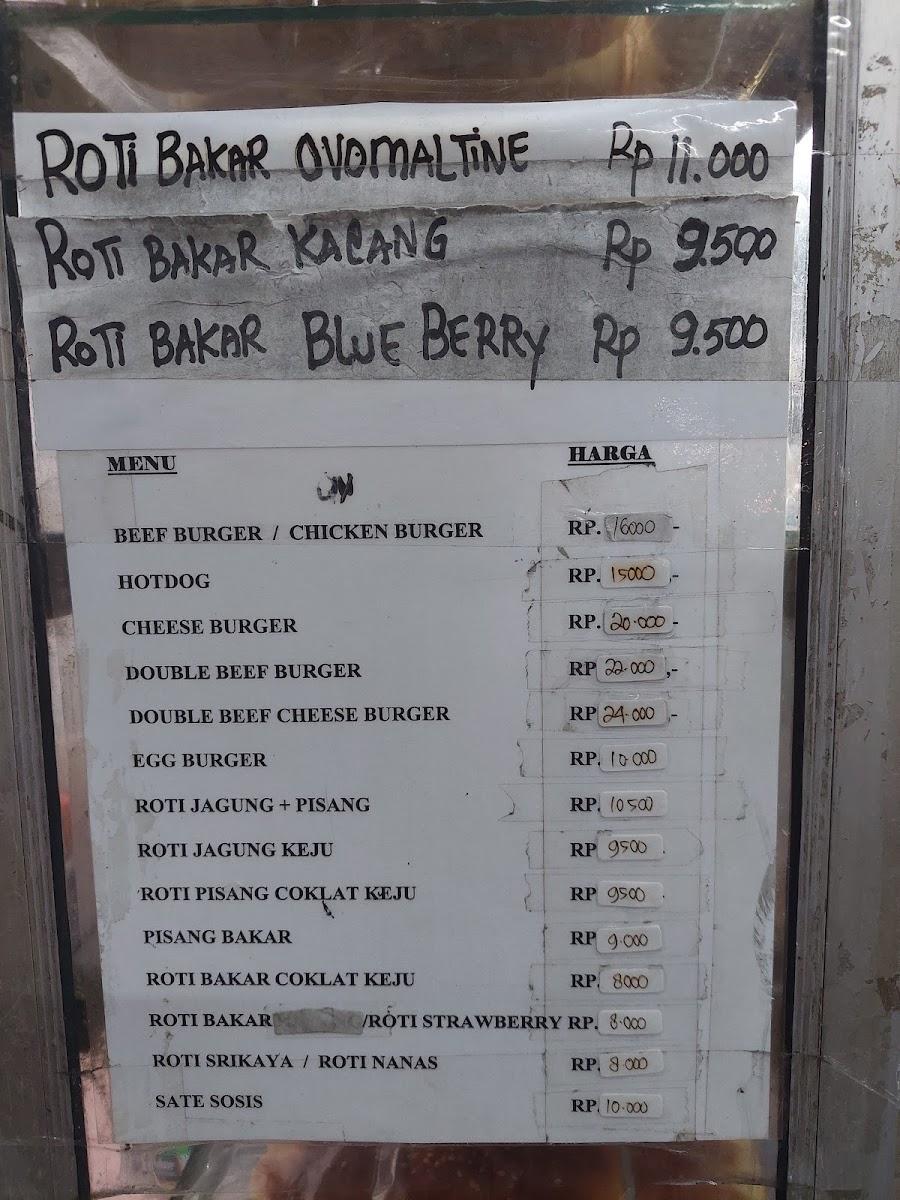 ROTI BAKAR OVOMALTINE Rp 11.000
ROTI BAKAR KACANG Rp 9.500
ROTI BAKAR BLUE BERRY Rp 9.500
MENU HARGA
BEEF BURGER / CHICKEN BURGER RP. 16000 -
HOTDOG RP. 15000 ,-
CHEESE BURGER RP. 20.000 -
DOUBLE BEEF BURGER RP 22.000 ,-
DOUBLE BEEF CHEESE BURGER RP 24.000 ,-
EGG BURGER RP. 10.000
ROTI JAGUNG + PISANG RP. 10500
ROTI JAGUNG KEJU RP 9500
ROTI PISANG COKLAT KEJU RP 9500
PISANG BAKAR RP 9.000
ROTI BAKAR COKLAT KEJU RP. 8000
ROTI BAKAR /ROTI STRAWBERRY RP. 8.000
ROTI SRIKAYA / ROTI NANAS RP. 8.000
SATE SOSIS RP. 10.000